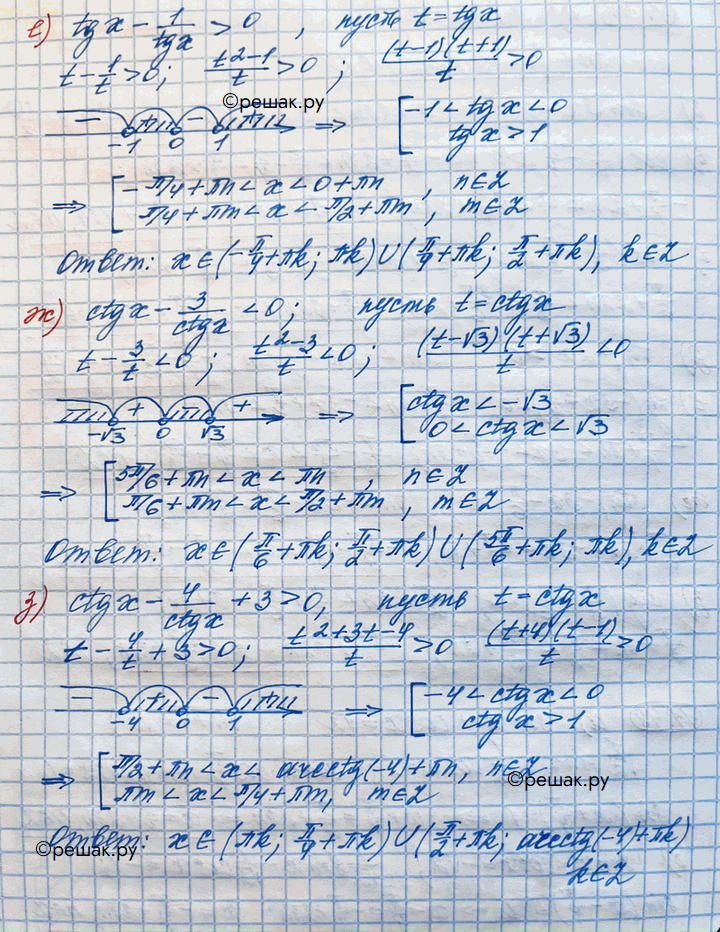 е) tgx - 1/tgx > 0, пусть t = tgx
t - 1/t > 0; t²-1/t > 0; (t-1)(t+1)/t > 0
©решак.ру
- + - + ⇒ [ -1 < tgx < 0
-1 0 1 tgx > 1
⇒ [ -π/4 + πn < x < 0 + πn, n∈Z
π/4 + πm < x < π/2 + πm, m∈Z
Ответ: x∈(-π/4 + πk; πk) ∪ (π/4 + πk; π/2 + πk), k∈Z
ж) ctgx - 3/ctgx < 0; пусть t = ctgx
t - 3/t < 0; t²-3/t < 0; (t-√3)(t+√3)/t < 0
+ + ⇒ [ ctgx < -√3
-√3 0 √3 0 < ctgx < √3
⇒ [ 5π/6 + πn < x < πn, n∈Z
π/6 + πm < x < π/2 + πm, m∈Z
Ответ: x∈(π/6 + πk; π/2 + πk) ∪ (5π/6 + πk; πk), k∈Z
з) ctgx - 4/ctgx + 3 > 0, пусть t = ctgx
t - 4/t + 3 > 0; t²+3t-4/t > 0 (t+4)(t-1)/t > 0
- + - + ⇒ [ -4 < ctgx < 0
-4 0 1 ctgx > 1
⇒ [ π/2 + πn < x < arcctg(-4) + πn, n∈Z
πm < x < π/4 + πm, m∈Z
©решак.ру
Ответ: x∈(πk; π/4 + πk) ∪ (π/2 + πk; arcctg(-4) + πk)
©решак.ру
k∈Z